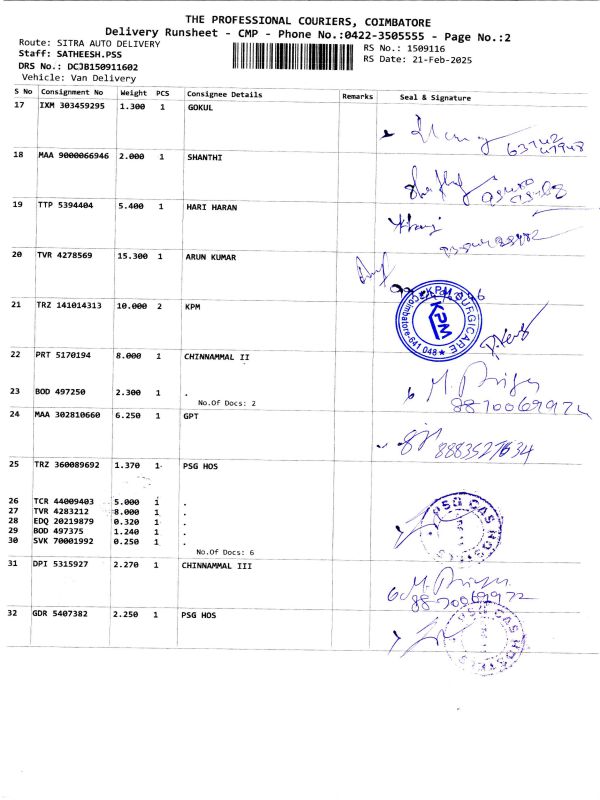 THE PROFESSIONAL COURIERS, COIMBATORE
Delivery Runsheet - CMP - Phone No.:0422-3505555 - Page No.:2
Route: SITRA AUTO DELIVERY
Staff: SATHEESH.PSS
RS No.: 1509116
DRS No.: DCJB150911602
RS Date: 21-Feb-2025
Vehicle: Van Delivery
S No Consignment No Weight PCS Consignee Details Remarks Seal & Signature
17 IXM 303459295 1.300 1 GOKUL
18 MAA 9000066946 2.000 1 SHANTHI
19 TTP 5394404 5.400 1 HARI HARAN
20 TVR 4278569 15.300 1 ARUN KUMAR
21 TRZ 141014313 10.000 2 KPM
KPM SURGICARE
KPM
Coimbatore-641 048 ★
22 PRT 5170194 8.000 1 CHINNAMMAL II
23 BOD 497250 2.300 1 .
No.Of Docs: 2
8870069972
24 MAA 302810660 6.250 1 GPT
8883527634
25 TRZ 360089692 1.370 1 PSG HOS
26 TCR 44009403 5.000 1 .
27 TVR 4283212 8.000 1 .
28 EDQ 20219879 0.320 1 .
29 BOD 497375 1.240 1 .
30 SVK 70001992 0.250 1 .
No.Of Docs: 6
PSG CAS HOSTELS
31 DPI 5315927 2.270 1 CHINNAMMAL III
8870069972
32 GDR 5407382 2.250 1 PSG HOS
PSG CAS HOSTELS